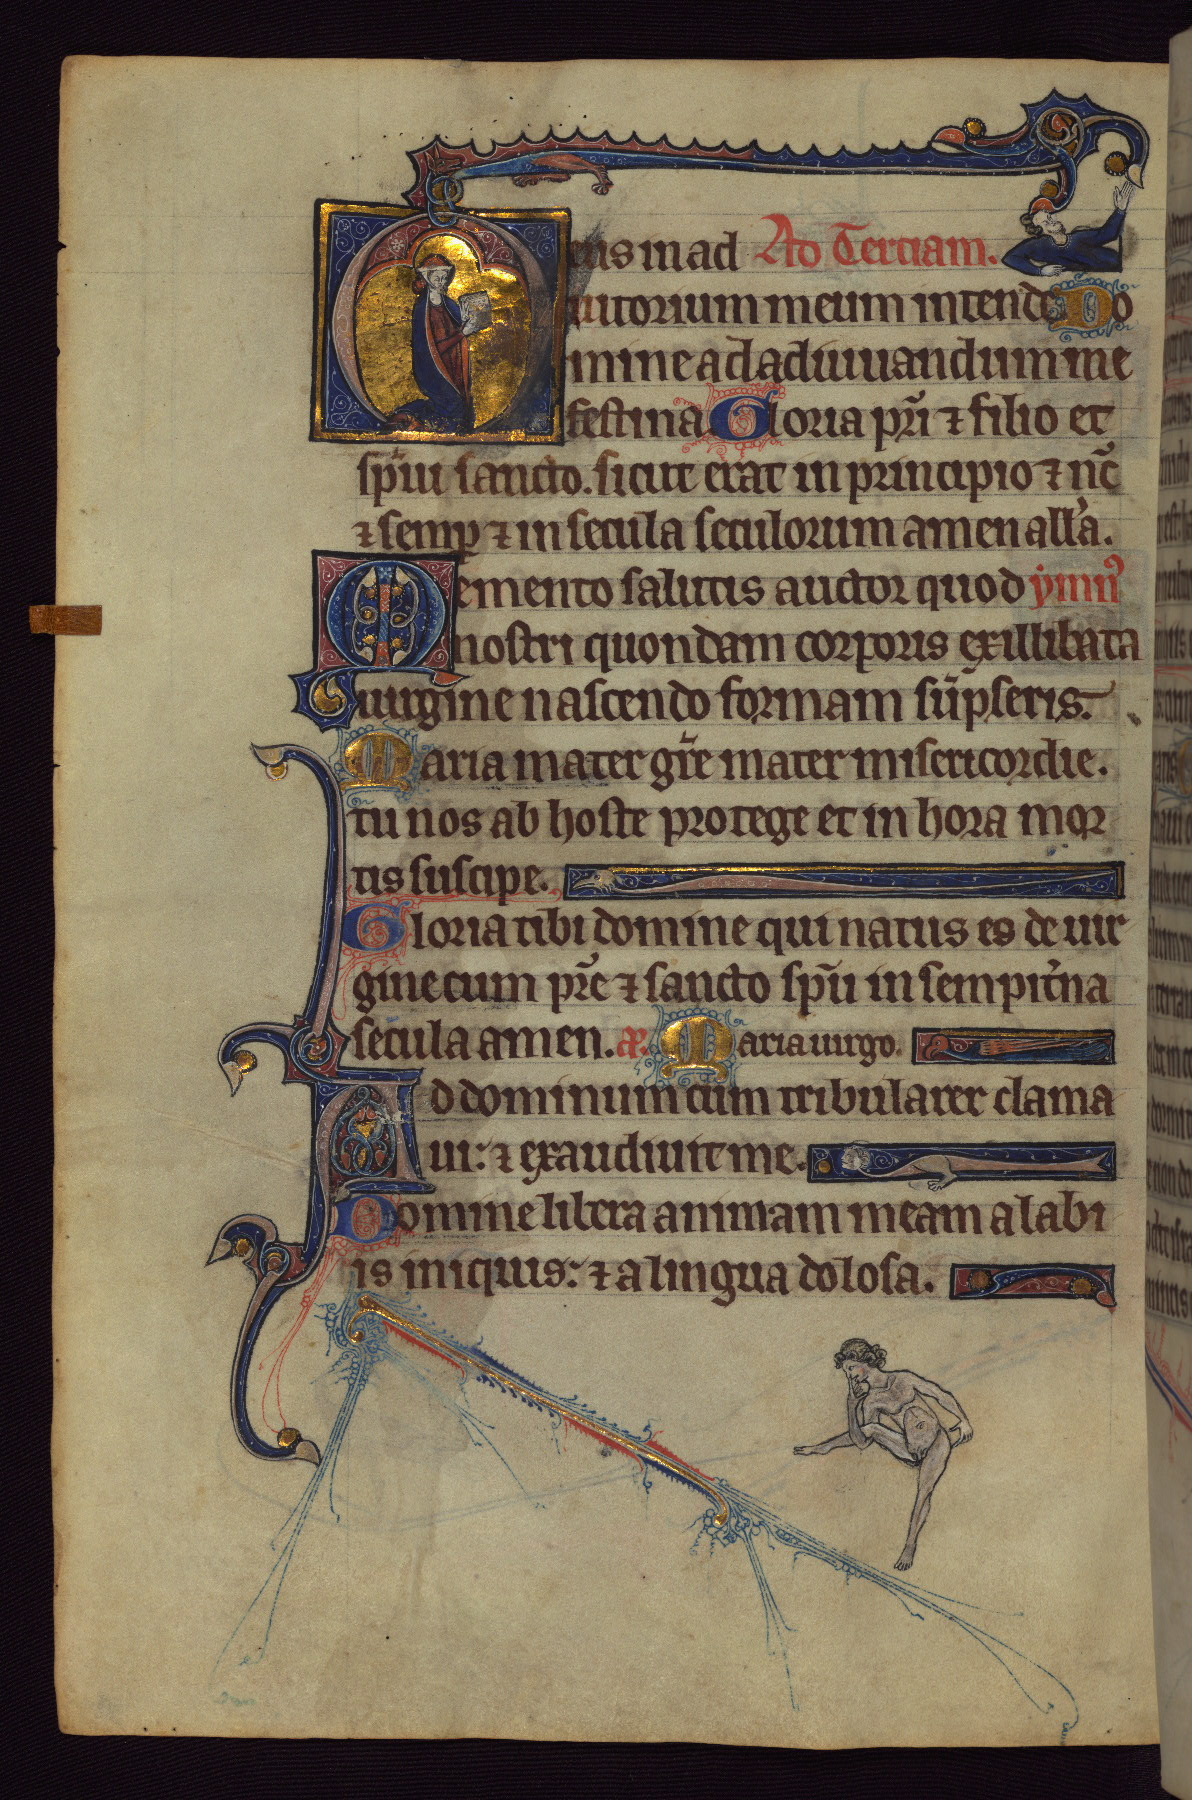 Deus in ad Ad Terciam.
iutorium meum intende Do
mine ad adiuuandum me
festina Gloria pr̄i ⁊ filio et
sp̄ui sancto. sicut erat in principio ⁊ nc̄
⁊ semꝑ ⁊ in secula seculorum amen all'a.
Memento salutis auctor quod ẏmn⁹
nostri quondam corporis ex illibata
uirgine nascendo formam sūpseris.
Maria mater gr̄e mater misericordie.
tu nos ab hoste protege et in hora mor
tis suscipe.
Gloria tibi domine qui natus es de uir
gine cum pr̄e ⁊ sancto sp̄u in sempit'na
secula amen. a͞. Maria uirgo.
Ad dominum cum tribularer clama
ui: ⁊ exaudiuit me.
Domine libera animam meam a labi
is iniquis: ⁊ a lingua dolosa.